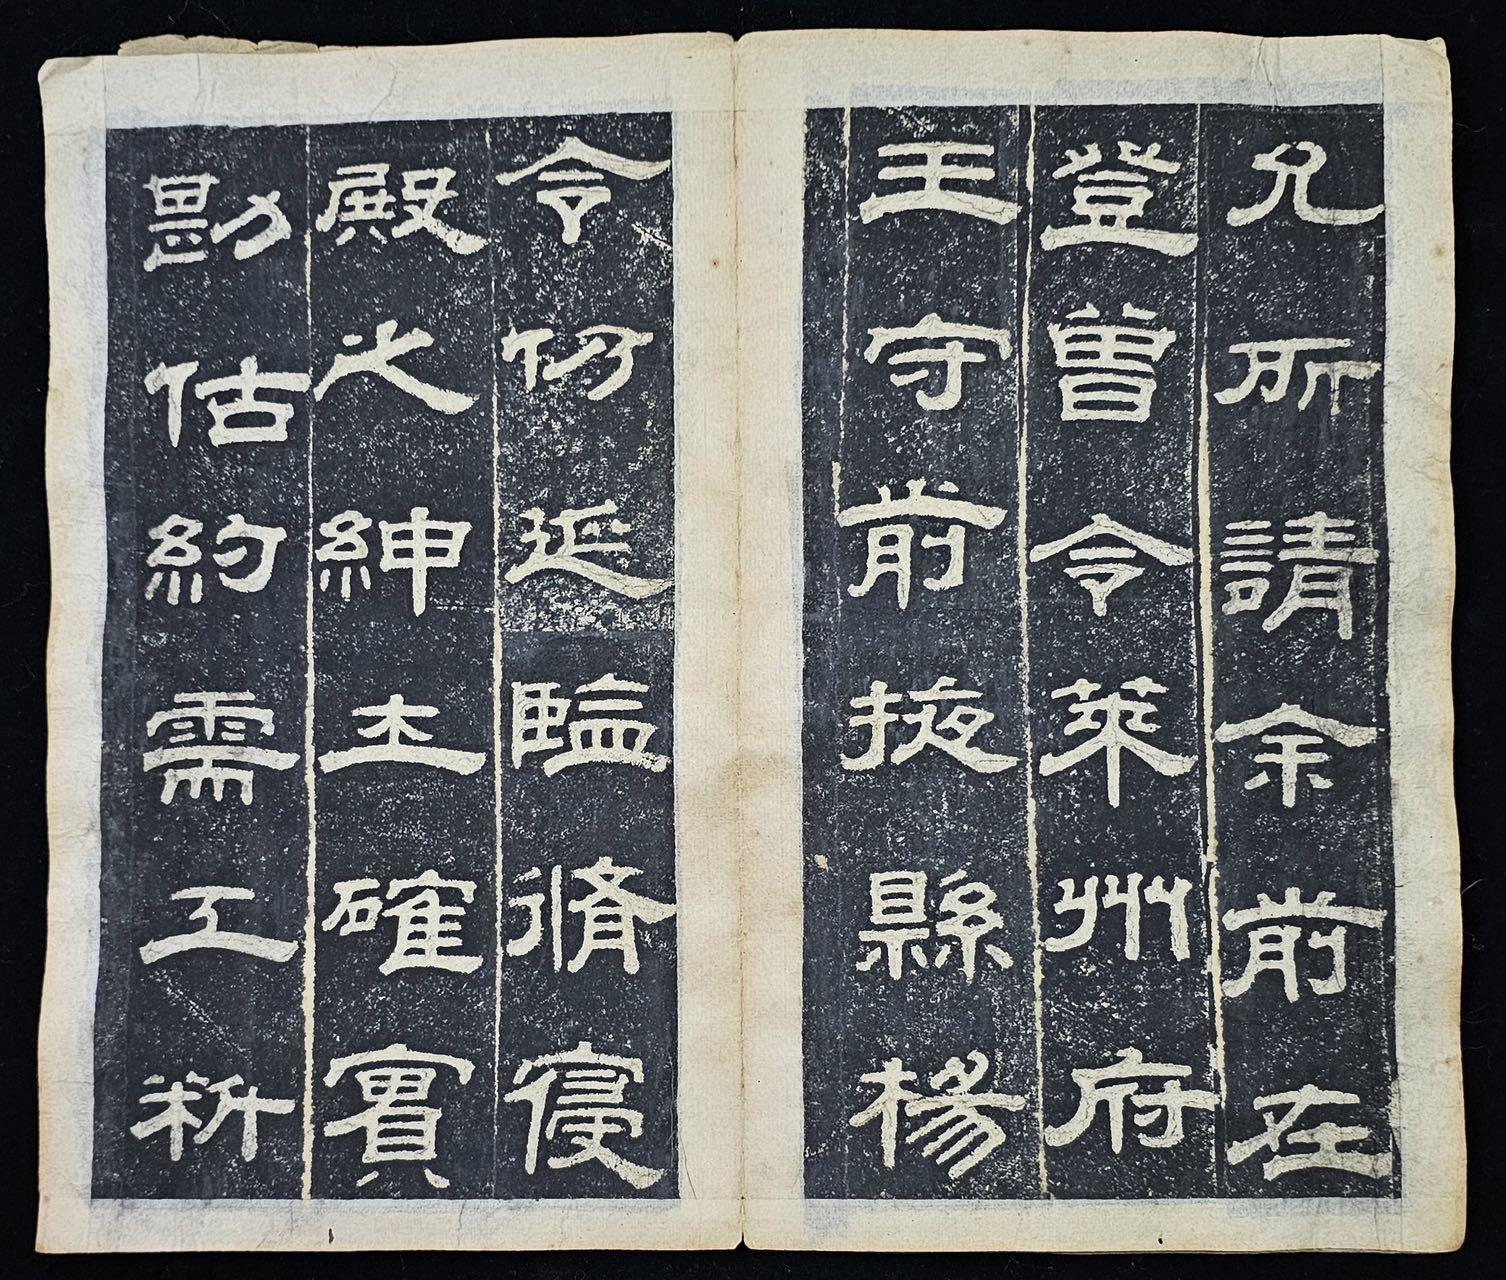 允所請余前在
登曾令萊州府
王守前掖縣楊
令仂延臨脩寑
殿之紳士確實
勘估約需工料